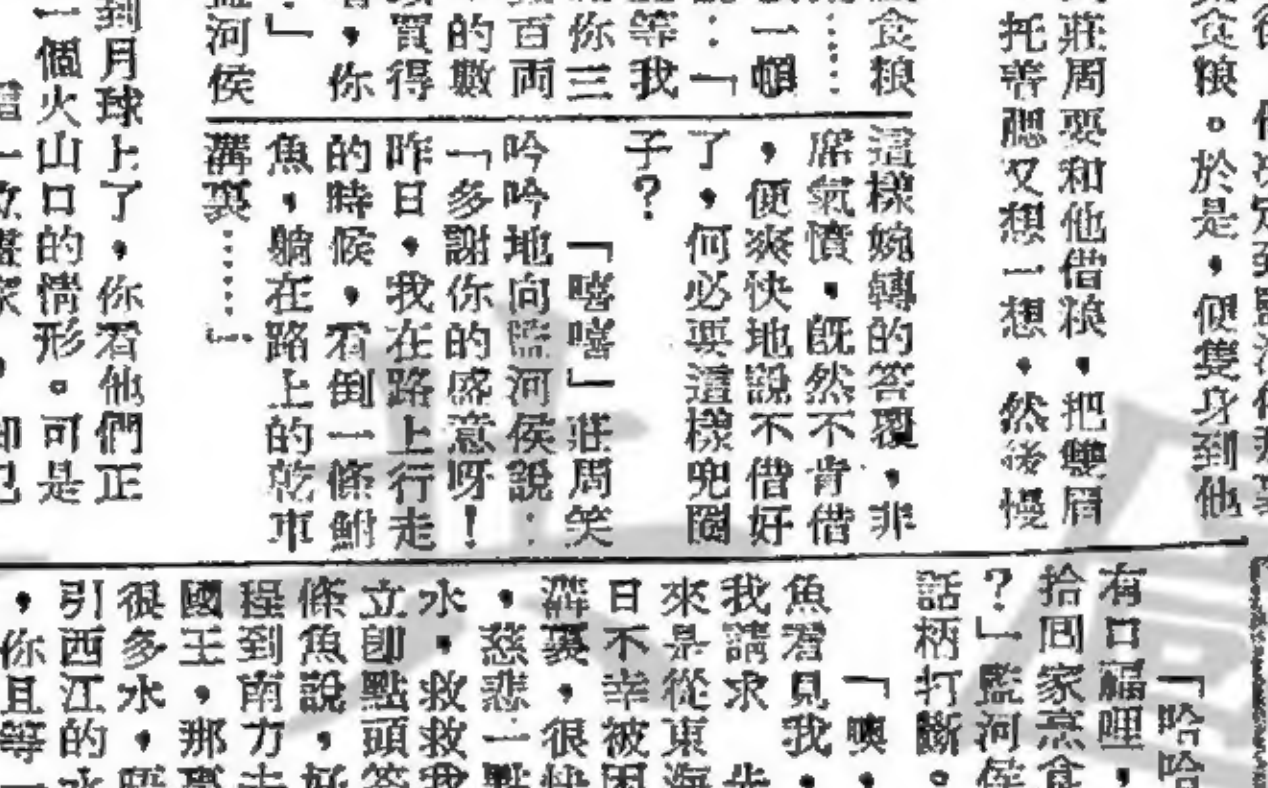 食粮。於是，便隻身到他
莊周要和他借粮，把雙眉
托善腮又想一想，然後慢
食粮
……
一頓
：「
等我
你三
百両
的數
買得
，你
」
河侯
這樣婉轉的答覆，非
常氣憤，既然不肯借
，便爽快地說不借好
了，何必要這樣兜圈
子？
「嘻嘻」莊周笑
吟吟地向監河侯說：
「多謝你的盛意呀！
昨日，我在路上行走
的時候，看倒一條鮒
魚，躺在路上的乾車
溝裏……」
到月球上了，你看他們正
一個火山口的情形。可是
「哈哈
有口福哩，
拾回家烹食
？」監河侯
話柄打斷。
「噢，
魚看見我，
我請求
來是從東海
日不幸被困
溝裏，很快
，慈悲一點
水，救救我
立卽點頭答
條魚說，好
程到南方去
國王，那裏
很多水，
引西江的水
，你且等一